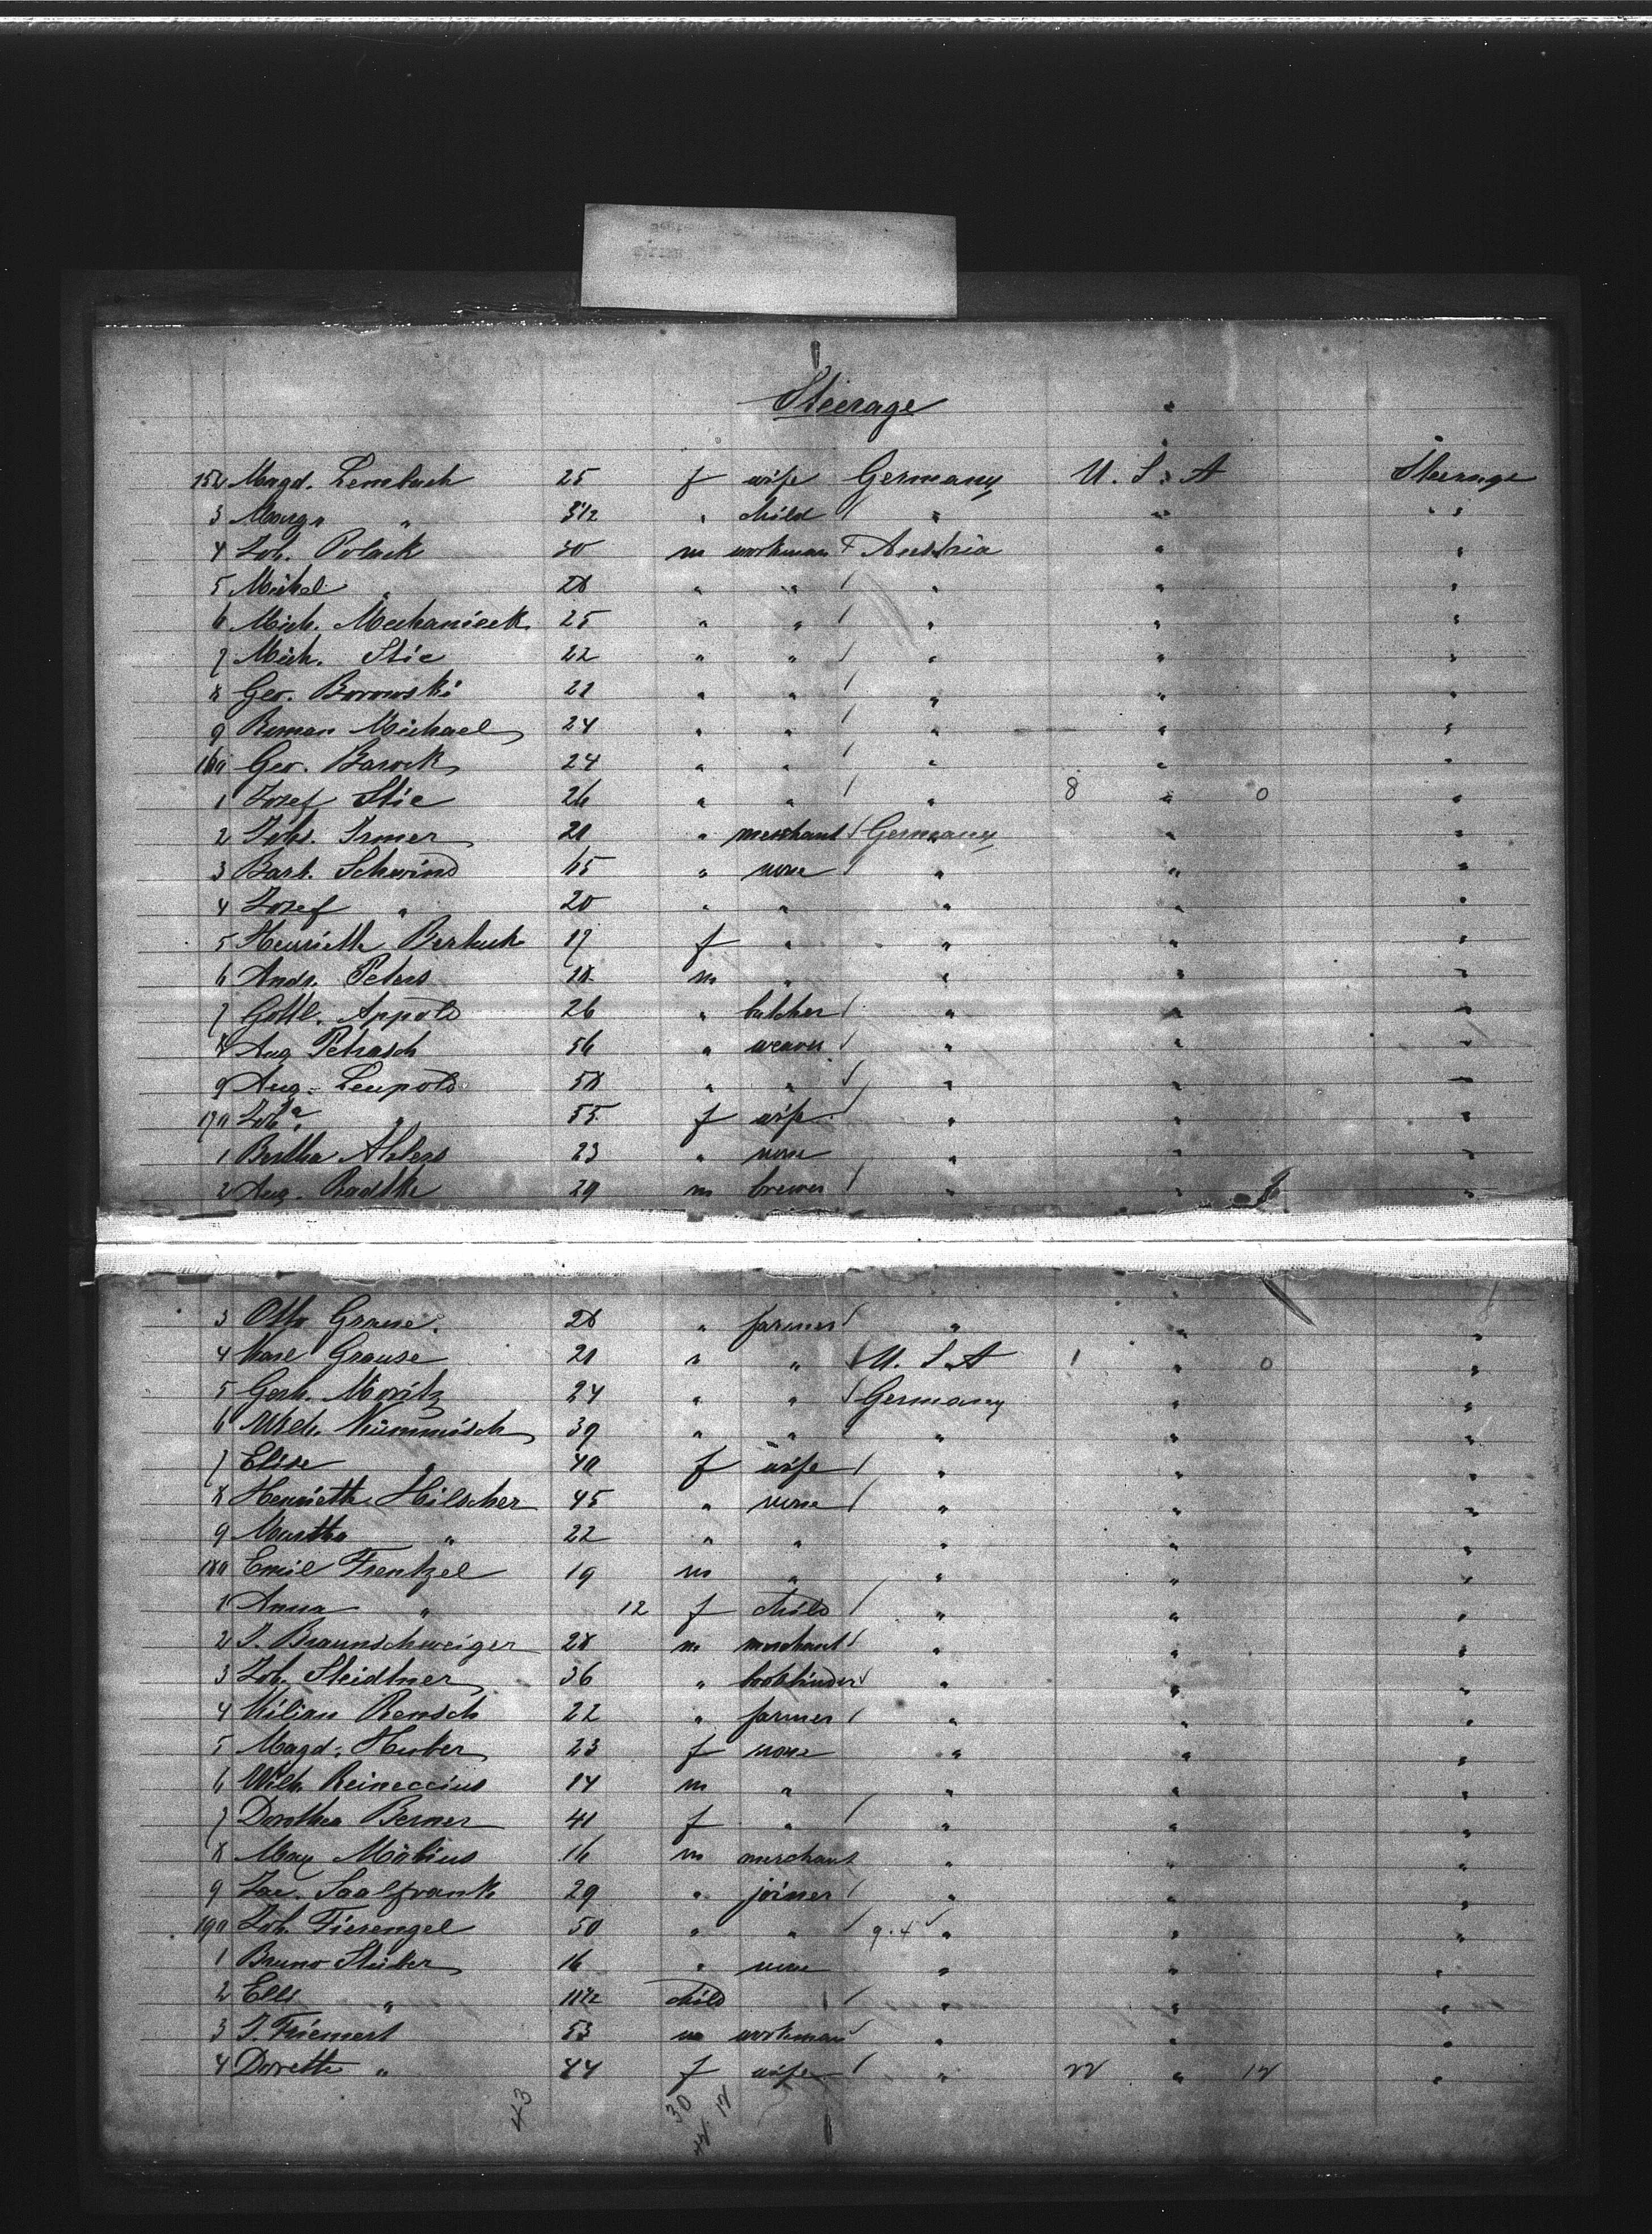 Steerage
152 Magd. Lembach 25 f wife Germany U. S. A Steerage
3 Marg. " 3 1/2 " child / " " "
4 Joh. Polack 30 m workman + Austria " "
5 Michel " 28 " " / " " "
6 Mich. Mechanicek 25 " " / " " "
7 Mich. Stic 22 " " / " " "
8 Geo. Borowski 21 " " / " " "
9 Roman Michael 24 " " / " " "
160 Geo. Barock 24 " " / " " "
1 Josef Stic 26 " " / " 8 " 0 "
2 Johs. Irmer 21 " merchant / Germany " "
3 Barb. Schwind 65 " none / " " "
4 Josef " 20 " " " " "
5 Henriette 19 f " " " "
6 Andr. Peters 18 m " " " "
7 Gottl. Appold 26 " butcher / " " "
8 Aug Petrasch 56 " weaver / " " "
9 Aug. Leupold 58 " " / " " "
170 Joha. " 55 f wife / " " "
1 Bertha Ahlers 23 " none " " "
2 Aug. Radtke 29 m brewer / " " "
3 Otto Graue. 28 " farmer / " " "
4 Karl Grause 21 " " / U. S. A 1 " 0 "
5 Gerh. Moritz 24 " " / Germany " "
6 Wilh. Kümmisch 39 " " " " "
7 Elise " 40 f wife / " " "
8 Henriette Hilscher 45 " none / " " "
9 Martha " 22 " " " " "
180 Emil Frentzel 19 m " " " "
1 Anna " 12 f child / " " "
2 J. Braunschweiger 28 m merchant / " " "
3 Joh. Steidtner 36 " bookbinder / " " "
4 Kilian Rensch 22 " farmer / " " "
5 Magd. Huber 23 f none " " "
6 Wilh. Reineccius 14 m " " " "
7 Dorothea Berner 41 f " / " " "
8 Max Möbius 16 m merchant " " "
9 Jac. Saalfrank 29 " joiner / " " "
190 Joh. Fierengel 50 " " / 9. 4 / " " "
1 Bruno Stüber 16 " none " " "
2 Elli " 11 1/2 child / " " "
3 J. Friemert 53 m workman / " " "
4 Dorette " 44 f wife / " 22 " 12 "
43 30 12
42